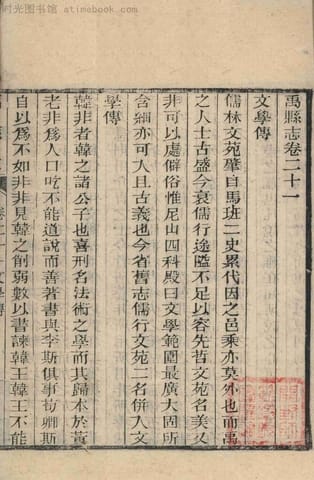 时光图书馆 atimebook.com
禹縣志卷二十一
文學傳
儒林文苑肇自馬班二史累代因之邑乘亦莫外也而禹
之人士古盛今衰儒行途隘不足以容先哲文苑名美又
非可以處僻俗惟尼山四科殿曰文學範圍最廣大固所
含細亦可入且古義也今省舊志儒行文苑二名併入文
學傳
韓非者韓之諸公子也喜刑名法術之學而其歸本於黃
老非爲人口吃不能道說而善著書與李斯俱事荀卿斯
自以爲不如非非見韓之削弱數以書諫韓王韓王不能